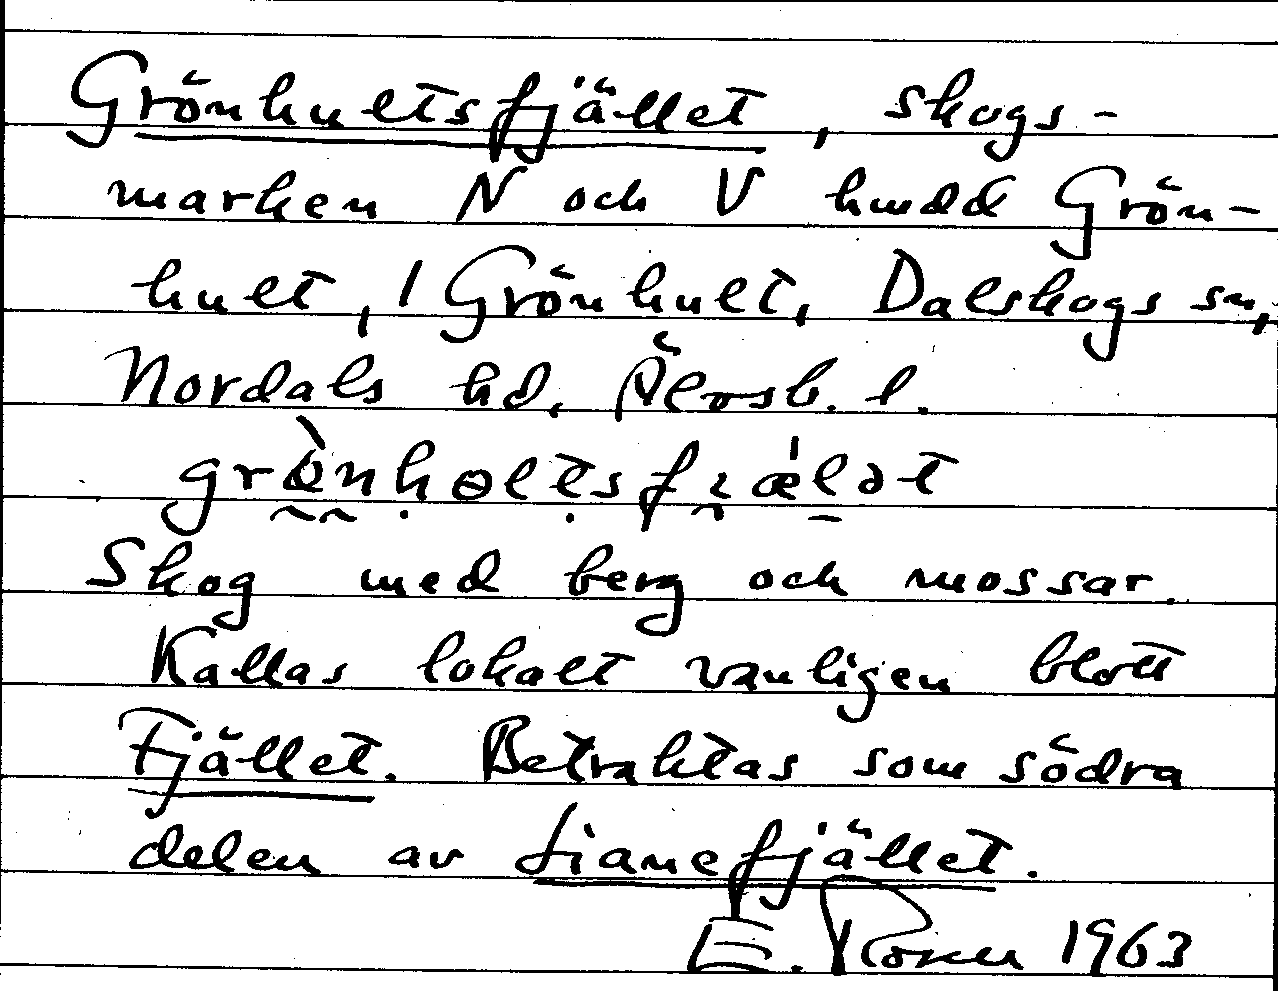 Grönhultsfjället, skogs-
marken N och V hmdd Grön-
hult, 1 Grönhult, Dalskogs sn,
Nordals hd, Älvsb. l.
grø̀nhɵltsfjæ̍lət
Skog med berg och mossar.
Kallas lokalt vanligen blott
Fjället. Betraktas som södra
delen av Lianefjället.
E. Rosen 1963